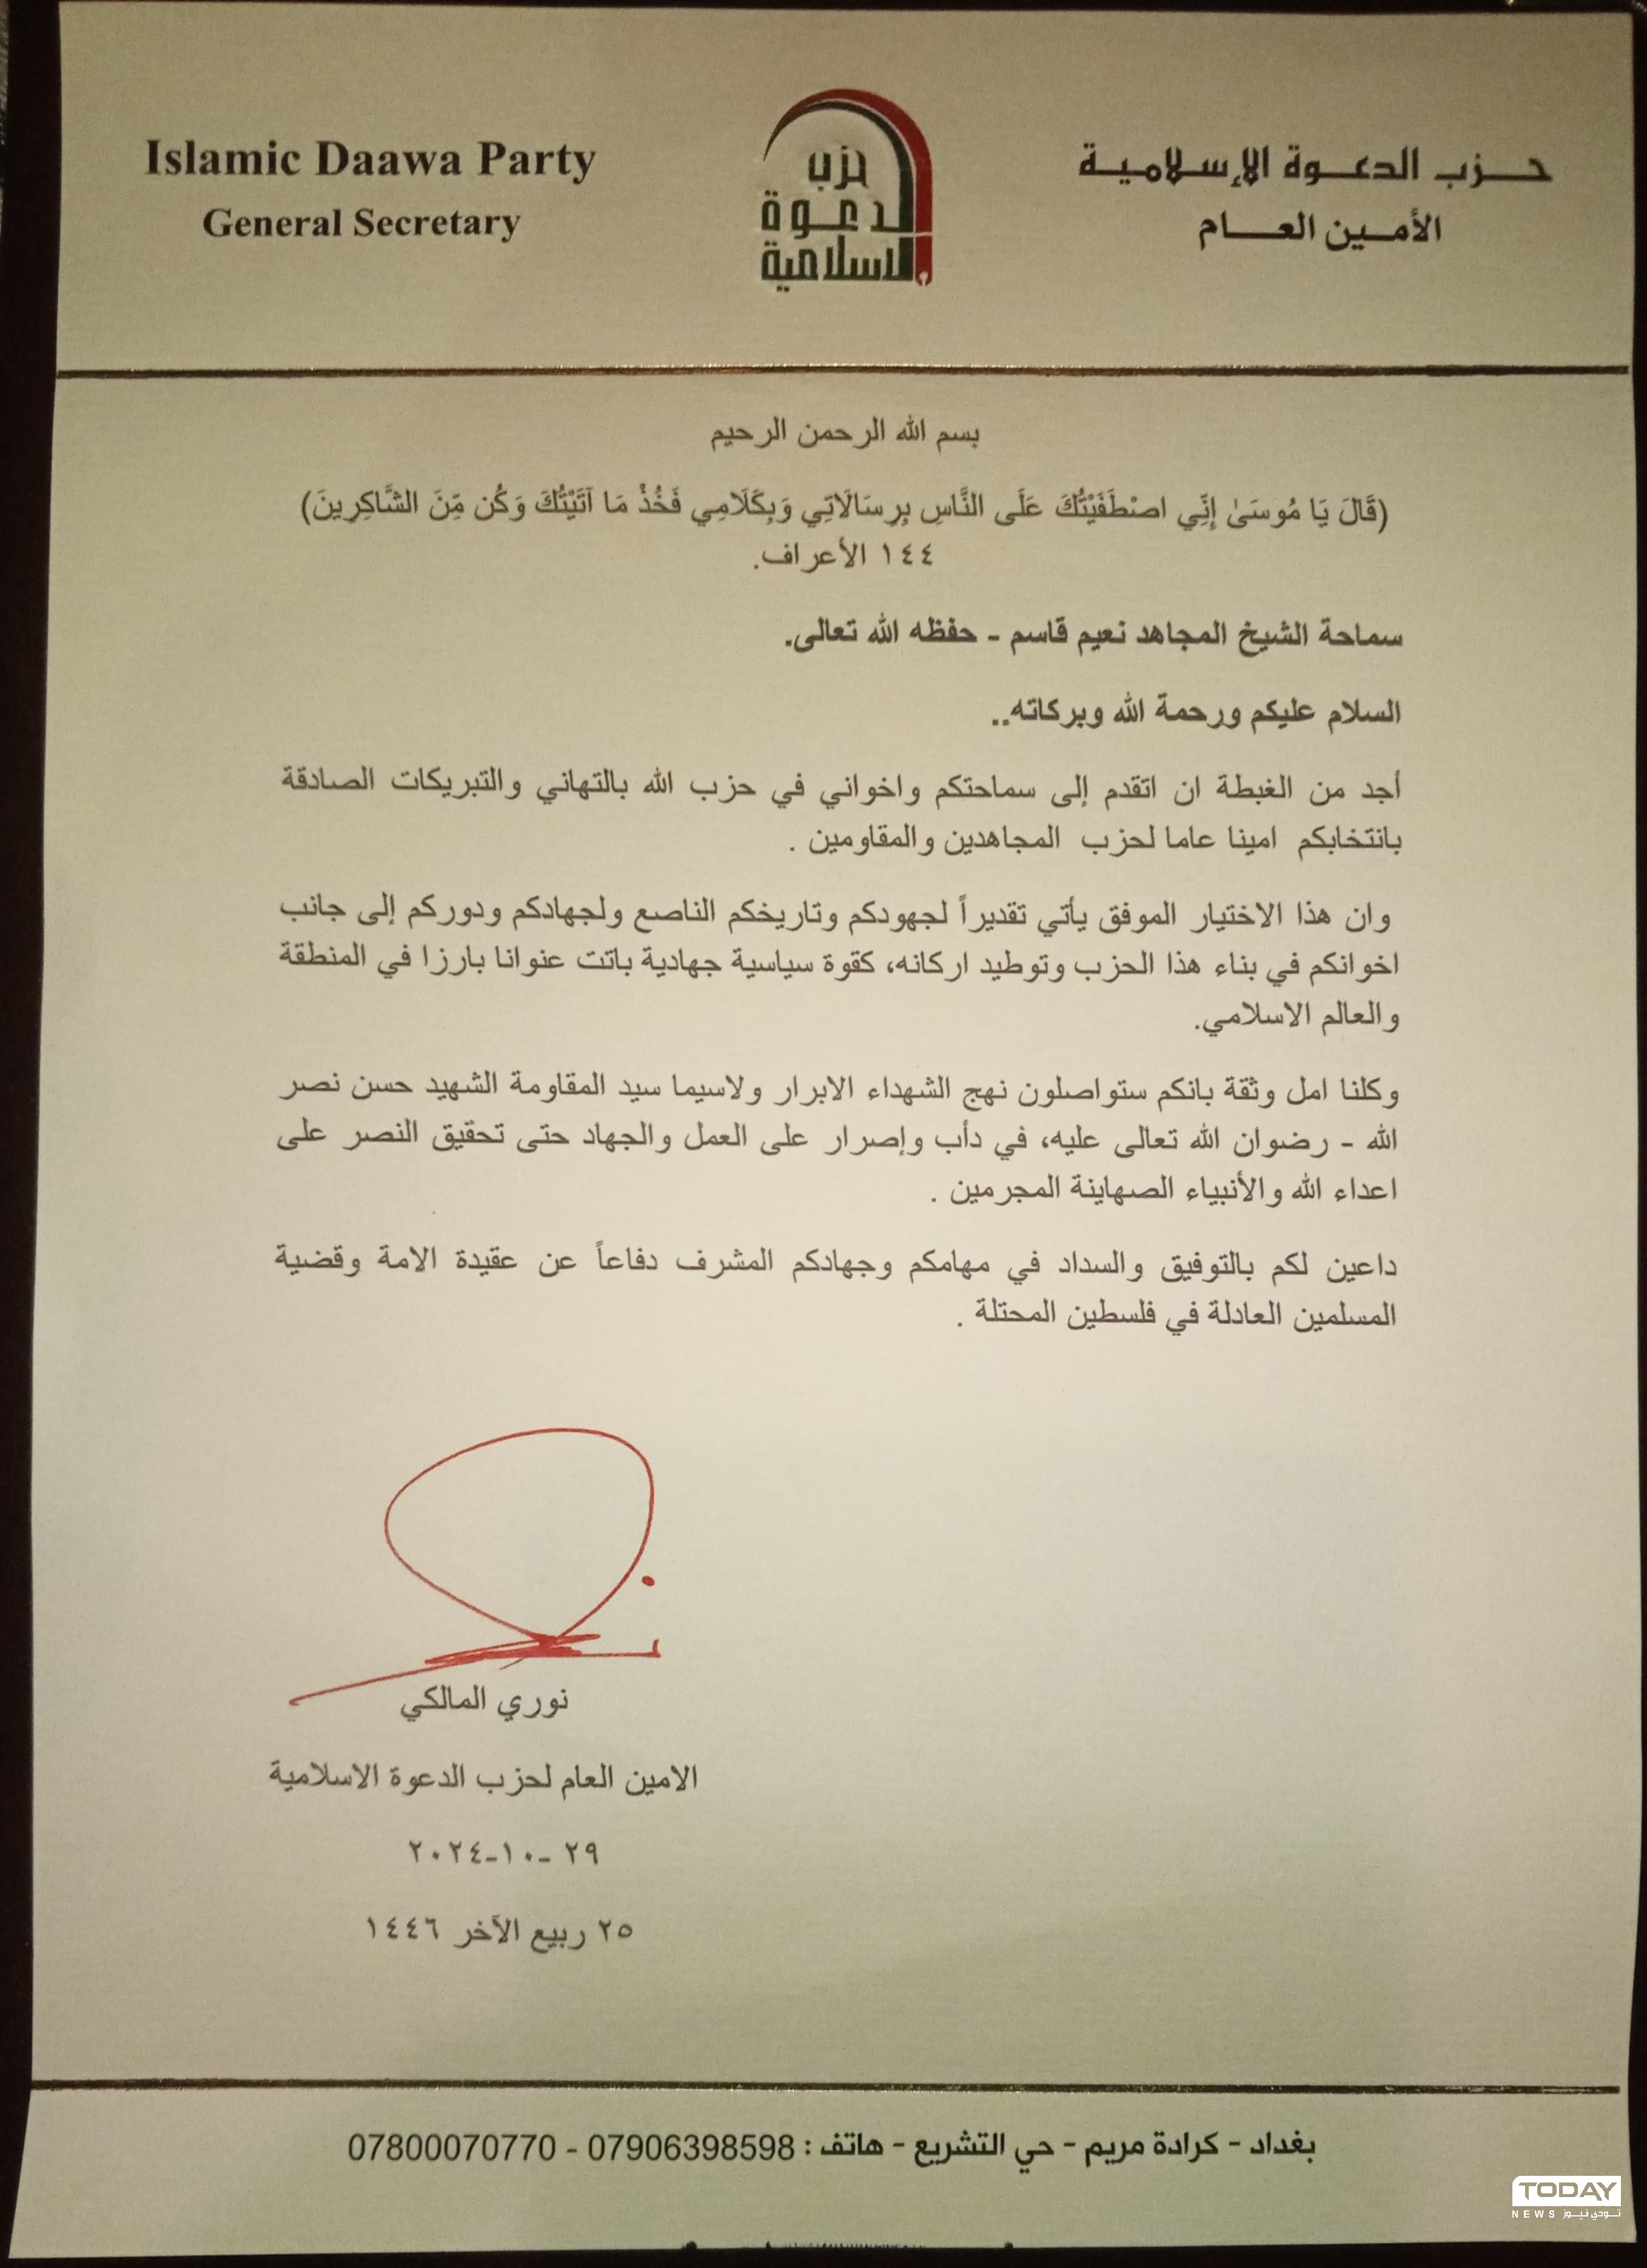 Islamic Daawa Party
General Secretary
حزب
لدعوة
الاسلامية
حــزب الدعــوة الإسـلاميـة
الأمـين العـــام
بسم الله الرحمن الرحيم
(قَالَ يَا مُوسَىٰ إِنِّي اصْطَفَيْتُكَ عَلَى النَّاسِ بِرِسَالَاتِي وَبِكَلَامِي فَخُذْ مَا آتَيْتُكَ وَكُن مِّنَ الشَّاكِرِينَ)
١٤٤ الأعراف.
سماحة الشيخ المجاهد نعيم قاسم - حفظه الله تعالى.
السلام عليكم ورحمة الله وبركاته..
أجد من الغبطة ان اتقدم إلى سماحتكم واخواني في حزب الله بالتهاني والتبريكات الصادقة
بانتخابكم امينا عاما لحزب المجاهدين والمقاومين .
وان هذا الاختيار الموفق يأتي تقديراً لجهودكم وتاريخكم الناصع ولجهادكم ودوركم إلى جانب
اخوانكم في بناء هذا الحزب وتوطيد اركانه، كقوة سياسية جهادية باتت عنوانا بارزا في المنطقة
والعالم الاسلامي.
وكلنا امل وثقة بانكم ستواصلون نهج الشهداء الابرار ولاسيما سيد المقاومة الشهيد حسن نصر
الله - رضوان الله تعالى عليه، في دأب وإصرار على العمل والجهاد حتى تحقيق النصر على
اعداء الله والأنبياء الصهاينة المجرمين .
داعين لكم بالتوفيق والسداد في مهامكم وجهادكم المشرف دفاعاً عن عقيدة الامة وقضية
المسلمين العادلة في فلسطين المحتلة .
نوري المالكي
الامين العام لحزب الدعوة الاسلامية
٢٩ -١٠-٢٠٢٤
٢٥ ربيع الآخر ١٤٤٦
بغداد - كرادة مريم - حي التشريع - هاتف : 07906398598 - 07800070770
TODAY
NEWS تـودي نيـوز